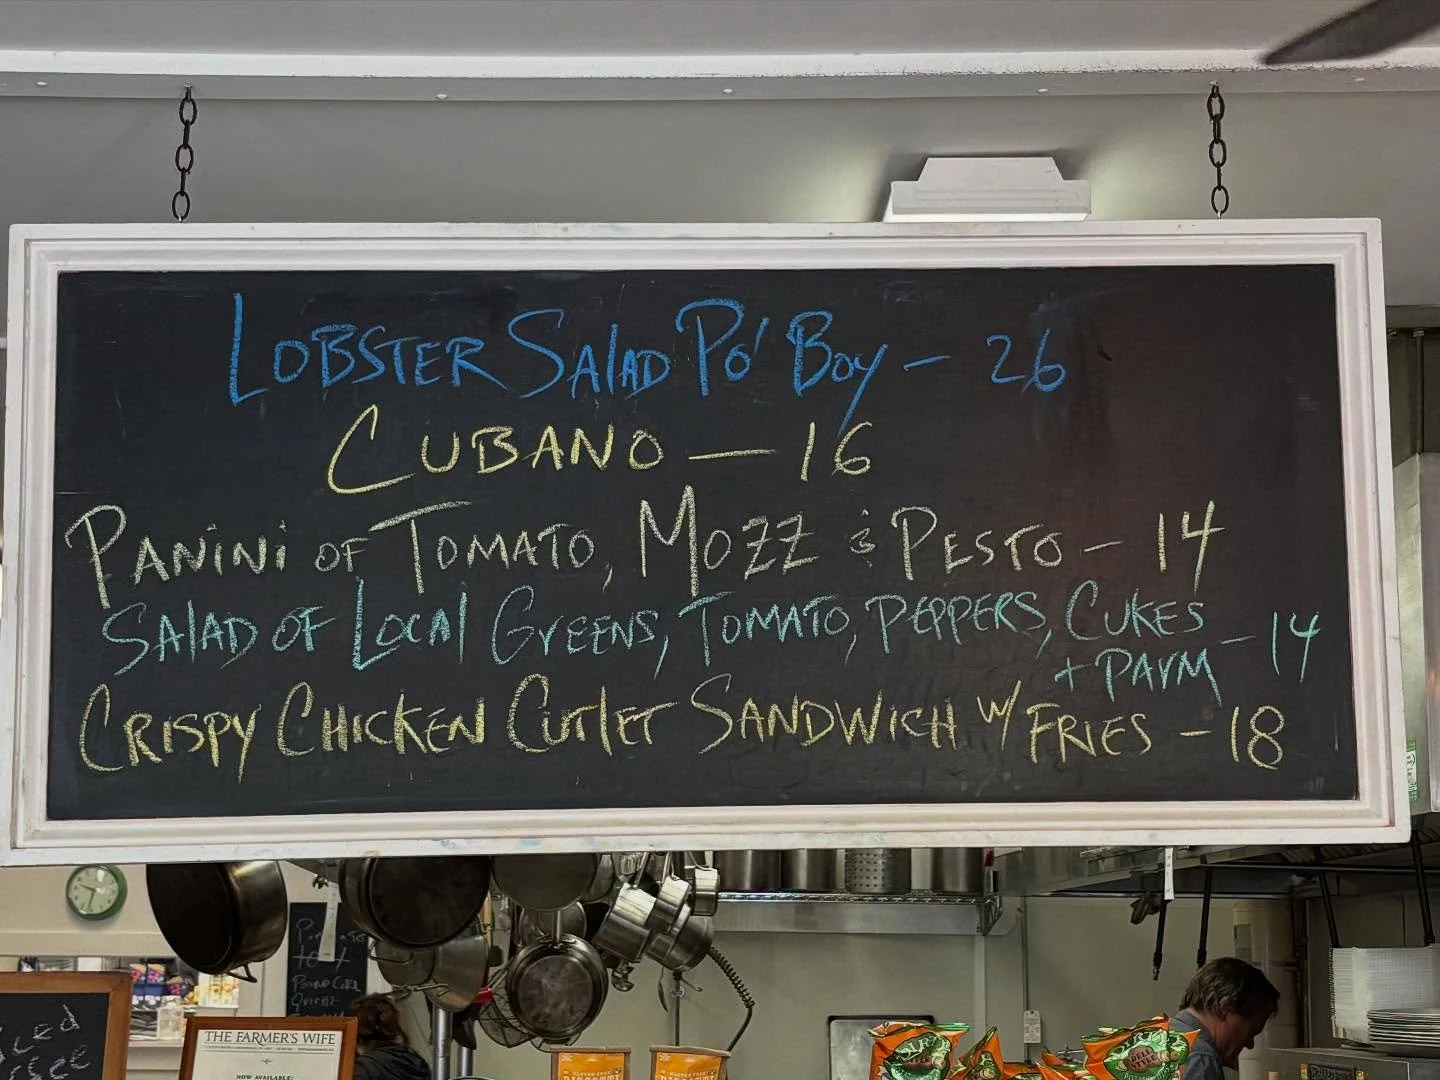 LOBSTER SALAD PO' BOY - 26
CUBANO - 16
PANINI OF TOMATO, MOZZ & PESTO - 14
SALAD OF LOCAL GREENS, TOMATO, PEPPERS, CUKES
+ PARM - 14
CRISPY CHICKEN CUTLET SANDWICH W/ FRIES - 18
POUND CAKE
THE FARMER'S WIFE
NOW AVAILABLE: